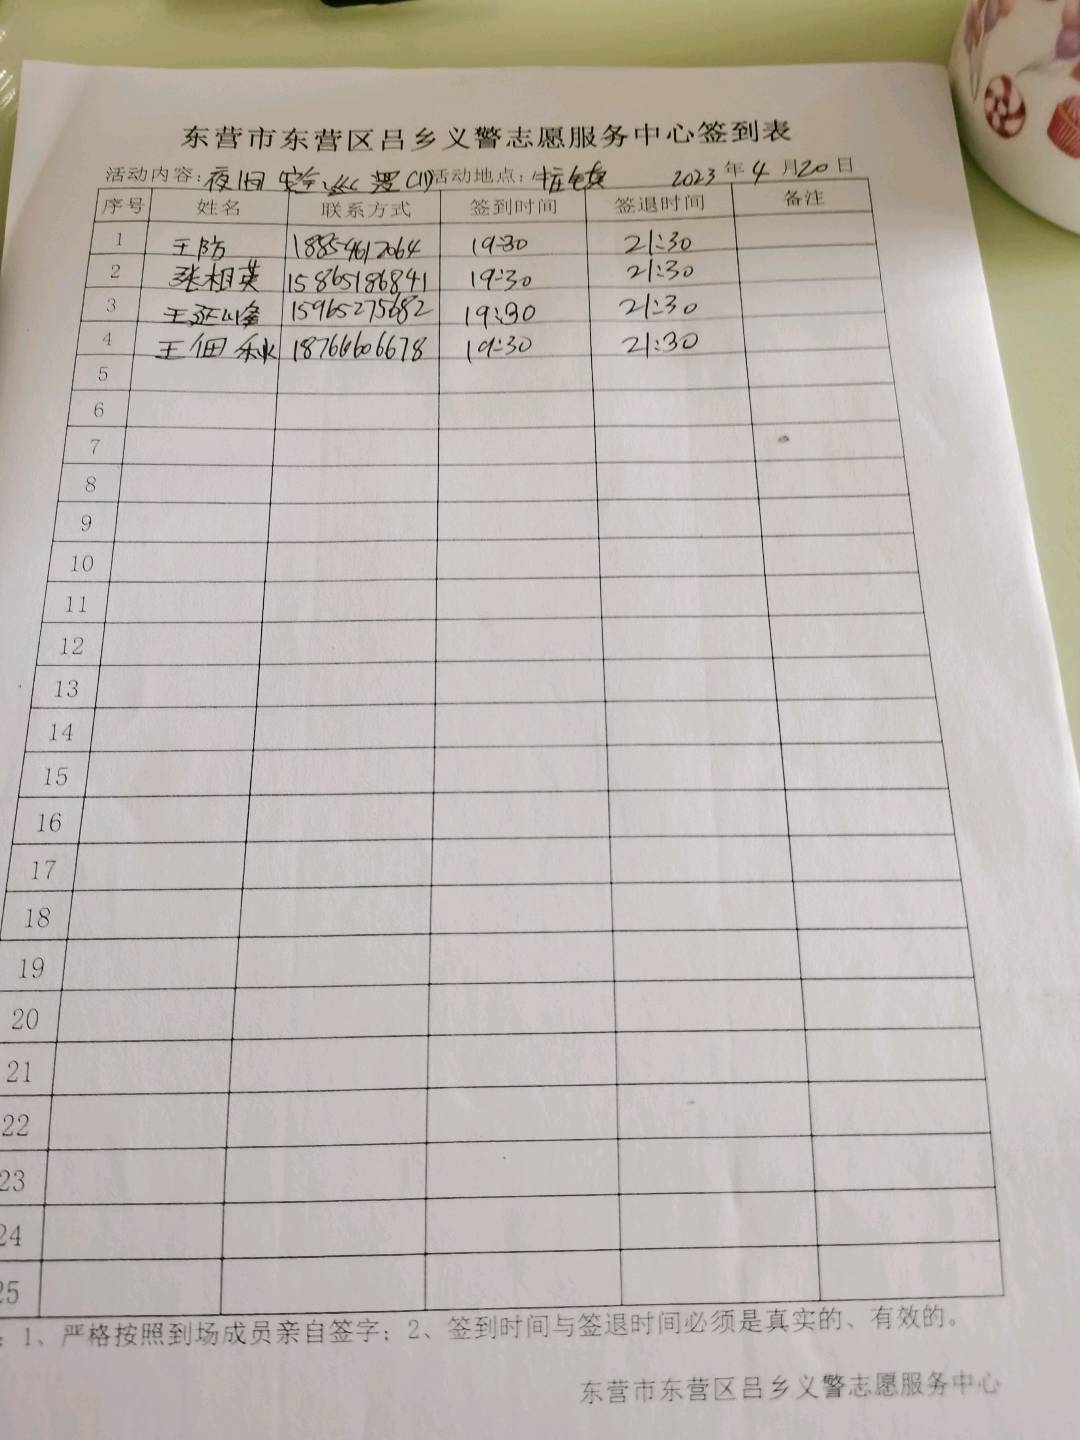 东营市东营区吕乡义警志愿服务中心签到表
活动内容：夜间安全巡逻(11) 活动地点：牛庄镇 2023年4月20日
序号 姓名 联系方式 签到时间 签退时间 备注
1 王防 18854612064 19:30 21:30
2 张相英 15865186841 19:30 21:30
3 王延峰 15965275682 19:30 21:30
4 王佃秋 18766606678 19:30 21:30
5
6
7
8
9
10
11
12
13
14
15
16
17
18
19
20
21
22
23
24
25
：1、严格按照到场成员亲自签字；2、签到时间与签退时间必须是真实的、有效的。
东营市东营区吕乡义警志愿服务中心